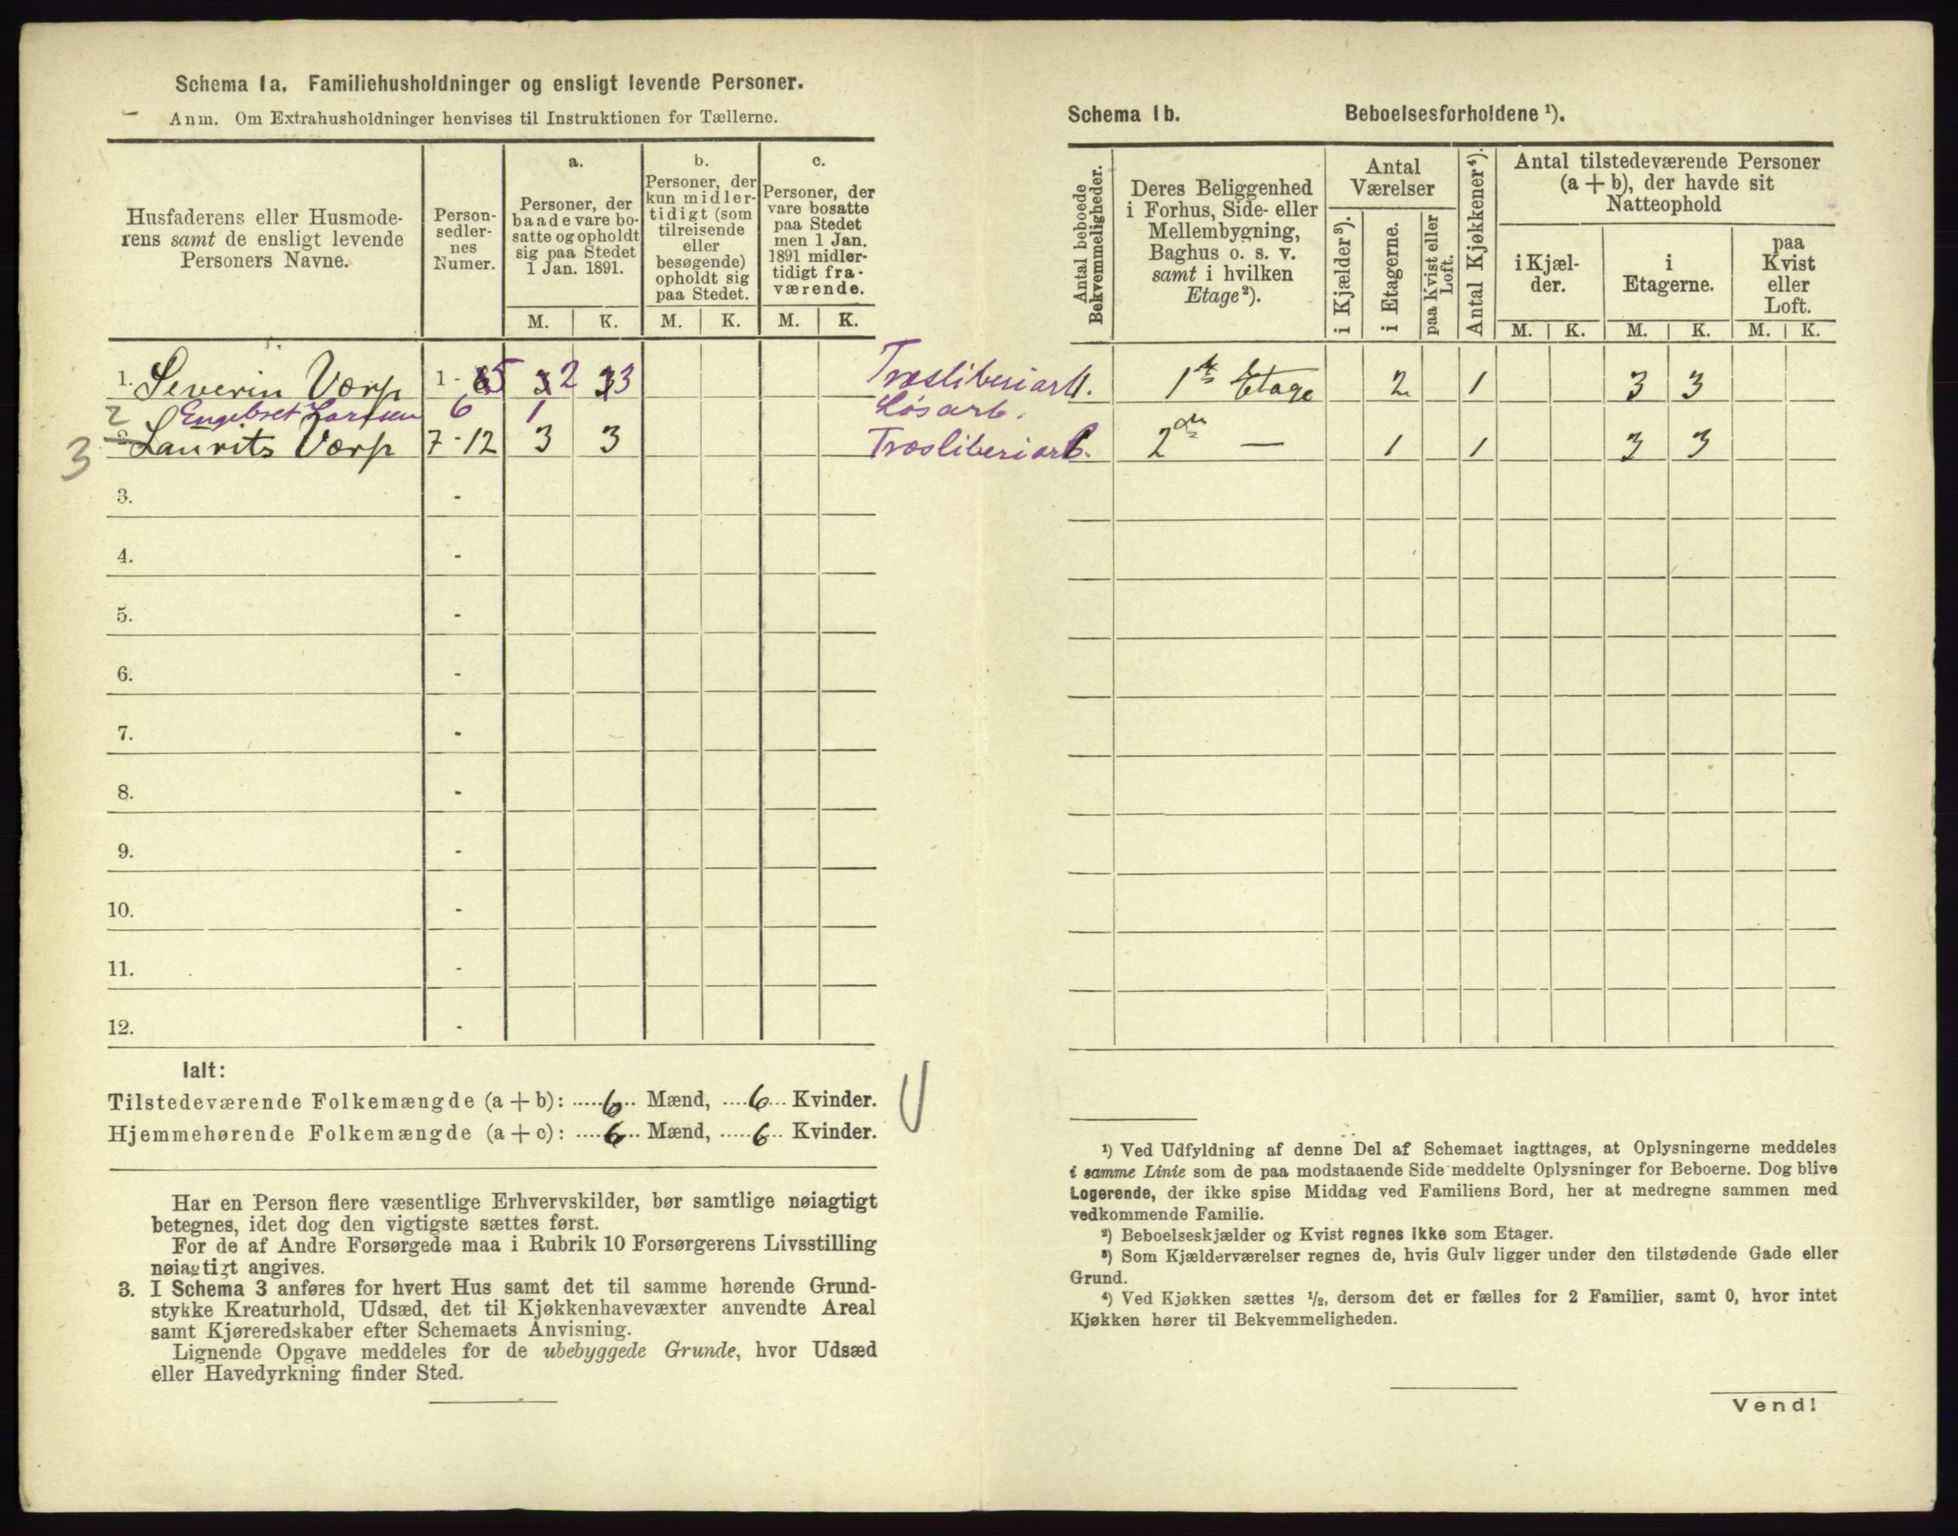 Schema 1a. Familiehusholdninger og ensligt levende Personer.
Anm. Om Extrahusholdninger henvises til Instruktionen for Tællerne.
Husfaderens eller Husmode-
rens samt de ensligt levende
Personers Navne.
Person-
sedler-
nes
Numer.
a.
Personer, der
baade vare bo-
satte og opholdt
sig paa Stedet
1 Jan. 1891.
M. K.
b.
Personer, der
kun midler-
tidigt (som
tilreisende
eller
besøgende)
opholdt sig
paa Stedet.
M. K.
c.
Personer, der
vare bosatte
paa Stedet
men 1 Jan.
1891 midler-
tidigt fra-
værende.
M. K.
1. Severin Værp 1 - 5 2 3 Træsliberiarb.
2 Engebret Larssen 6 1 Løsarb.
3 Laurits Værp 7 - 12 3 3 Træsliberiarb.
3. -
4. -
5. -
6. -
7. -
8. -
9. -
10. -
11. -
12. -
Ialt:
Tilstedeværende Folkemængde (a + b): 6 Mænd, 6 Kvinder.
Hjemmehørende Folkemængde (a + c): 6 Mænd, 6 Kvinder.
Har en Person flere væsentlige Erhvervskilder, bør samtlige nøiagtigt
betegnes, idet dog den vigtigste sættes først.
For de af Andre Forsørgede maa i Rubrik 10 Forsørgerens Livsstilling
nøiagtigt angives.
3. I Schema 3 anføres for hvert Hus samt det til samme hørende Grund-
stykke Kreaturhold, Udsæd, det til Kjøkkenhavevæxter anvendte Areal
samt Kjøreredskaber efter Schemaets Anvisning.
Lignende Opgave meddeles for de ubebyggede Grunde, hvor Udsæd
eller Havedyrkning finder Sted.
Schema 1b. Beboelsesforholdene ¹).
Antal beboede
Bekvemmeligheder.
Deres Beliggenhed
i Forhus, Side- eller
Mellembygning,
Baghus o. s. v.
samt i hvilken
Etage²).
Antal
Værelser
i Kjælder³).
i Etagerne.
paa Kvist eller
Loft.
Antal Kjøkkener⁴).
Antal tilstedeværende Personer
(a + b), der havde sit
Natteophold
i Kjæl-
der.
i
Etagerne.
paa
Kvist
eller
Loft.
M. K. M. K. M. K.
1. 1ste Etage 2 1 3 3
2den — 1 1 3 3
¹) Ved Udfyldning af denne Del af Schemaet iagttages, at Oplysningerne meddeles
i samme Linie som de paa modstaaende Side meddelte Oplysninger for Beboerne. Dog blive
Logerende, der ikke spise Middag ved Familiens Bord, her at medregne sammen med
vedkommende Familie.
²) Beboelseskjælder og Kvist regnes ikke som Etager.
³) Som Kjælderværelser regnes de, hvis Gulv ligger under den tilstødende Gade eller
Grund.
⁴) Ved Kjøkken sættes ½, dersom det er fælles for 2 Familier, samt 0, hvor intet
Kjøkken hører til Bekvemmeligheden.
Vend!